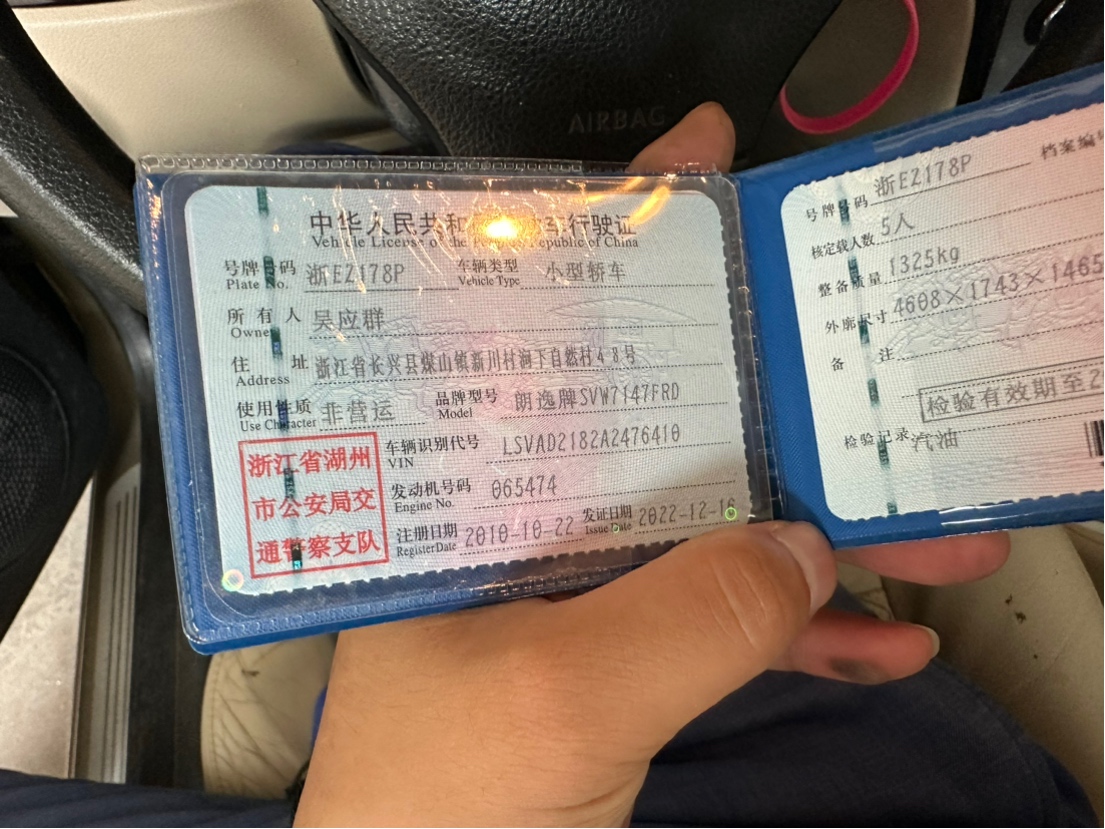 AIRBAG
中华人民共和 车行驶证
Vehicle License of the People's Republic of China
号牌号码 浙EZ178P 车辆类型 小型轿车
Plate No. Vehicle Type
所有人 吴应群
Owner
住址 浙江省长兴县煤山镇新川村涧下自然村48号
Address
使用性质 非营运 品牌型号 朗逸牌SVW7147FRD
Use Character Model
浙江省湖州
市公安局交
通警察支队
车辆识别代号 LSVAD2182A2476410
VIN
发动机号码 065474
Engine No.
注册日期 2010-10-22 发证日期 2022-12-16
Register Date Issue Date
号牌号码 浙EZ178P 档案编号
核定载人数 5人
整备质量 1325kg
外廓尺寸 4608×1743×1465
备注
检验有效期至2
检验记录 汽油